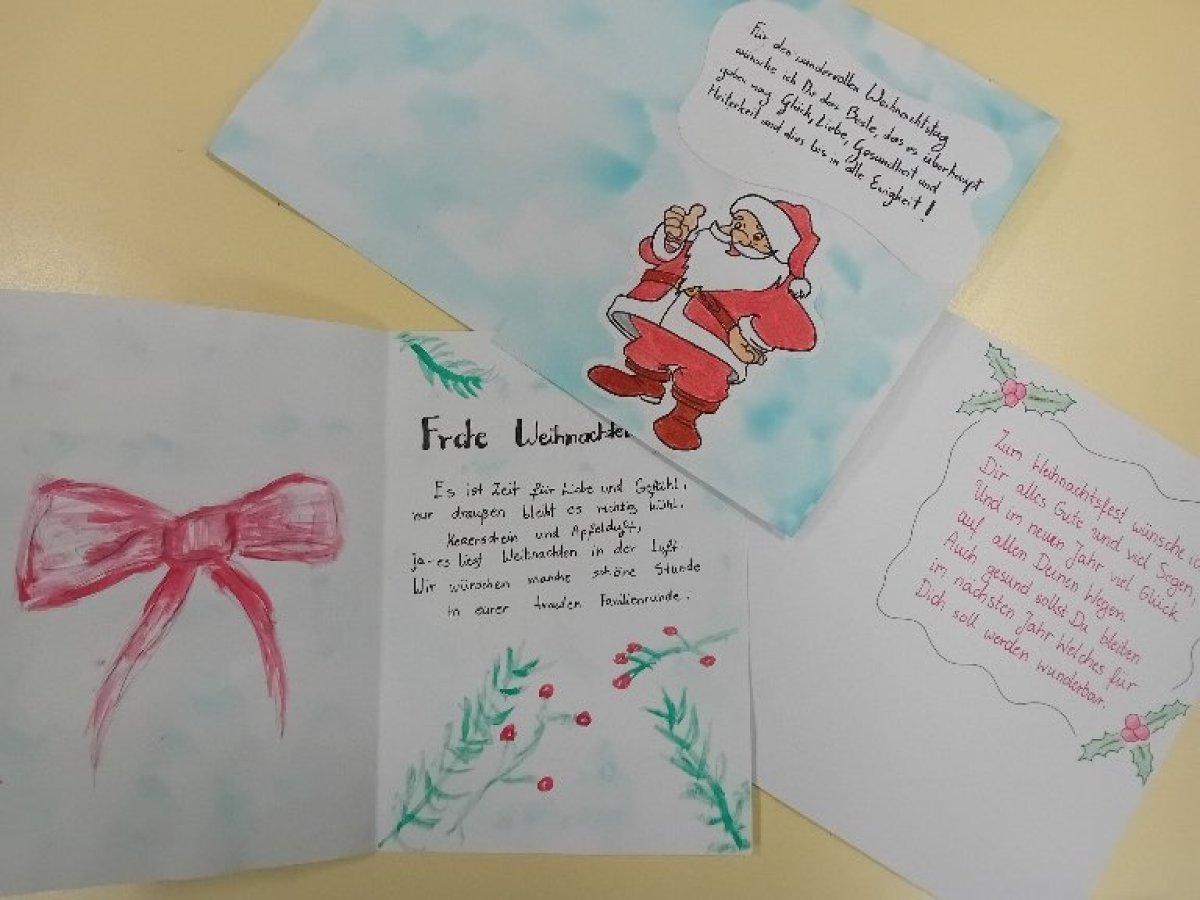 Für den wundervollen Weihnachtstag
wünsche ich Dir das Beste, das es überhaupt
geben mag Glück, Liebe, Gesundheit und
Heiterkeit und dies bis in alle Ewigkeit!
Frohe Weihnachten
Es ist Zeit für Liebe und Gefühl,
nur draußen bleibt es richtig kühl.
Kerzerschein und Apfelduft,
ja-es liegt Weihnachten in der Luft
Wir wünschen manche schöne Stunde
in eurer trauten Familienrunde.
Zum Weihnachtsfest wünsche ich
Dir alles Gute und viel Segen,
Und im neuen Jahr viel Glück
auf allen Deinen Wegen.
Auch gesund sollst Du bleiben
im nächsten Jahr Welches für
Dich soll werden wunderbar.